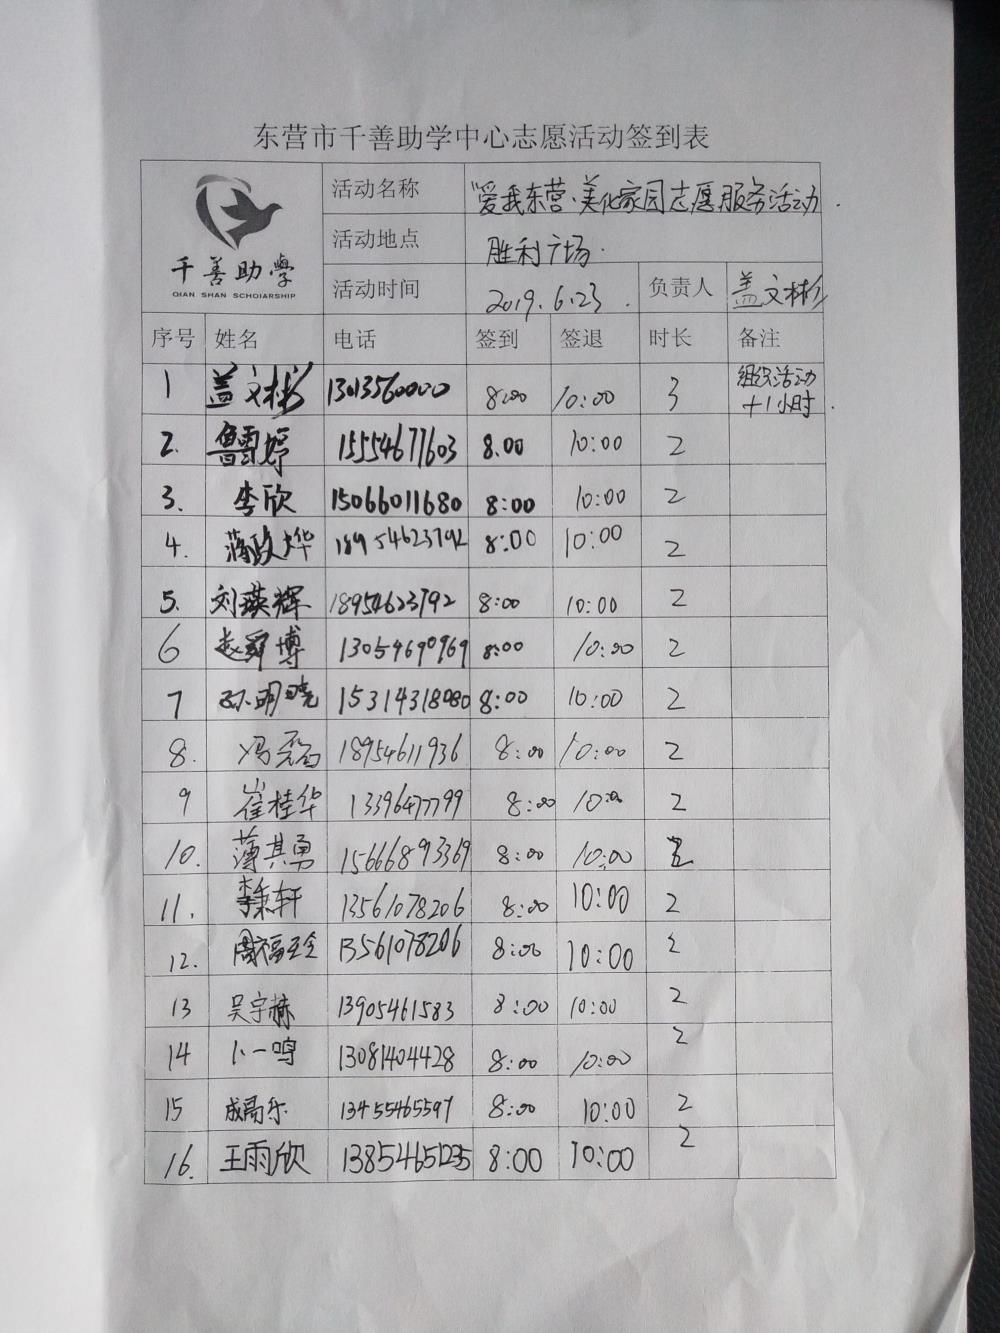 东营市千善助学中心志愿活动签到表
千善助學
QIAN SHAN SCHOIARSHIP
活动名称 "爱我东营·美化家园志愿服务活动
活动地点 胜利广场
活动时间 2019.6.23 负责人 盖文彬
序号 姓名 电话 签到 签退 时长 备注
1 盖文彬 13013560000 8:00 10:00 3 组织活动
+1小时
2. 鲁雪婷 15554677603 8.00 10:00 2
3. 李欣 15066011680 8:00 10:00 2
4. 蒋政烨 18954623792 8:00 10:00 2
5. 刘瑛辉 18954623792 8:00 10:00 2
6 赵舜博 13054690969 8:00 10:00 2
7 孙明晓 15314318080 8:00 10:00 2
8. 冯磊 18954611936 8:00 10:00 2
9 崔桂华 13396477799 8:00 10:00 2
10. 薄其勇 15666893369 8:00 10:00 2
11. 李秉轩 13561078206 8:00 10:00 2
12. 周福全 13561078206 8:00 10:00 2
13 吴宇赫 13905461583 8:00 10:00 2
14 卜一鸣 13081404428 8:00 10:00 2
15 成高乐 13455465597 8:00 10:00 2
16. 王雨欣 13854651235 8:00 10:00 2